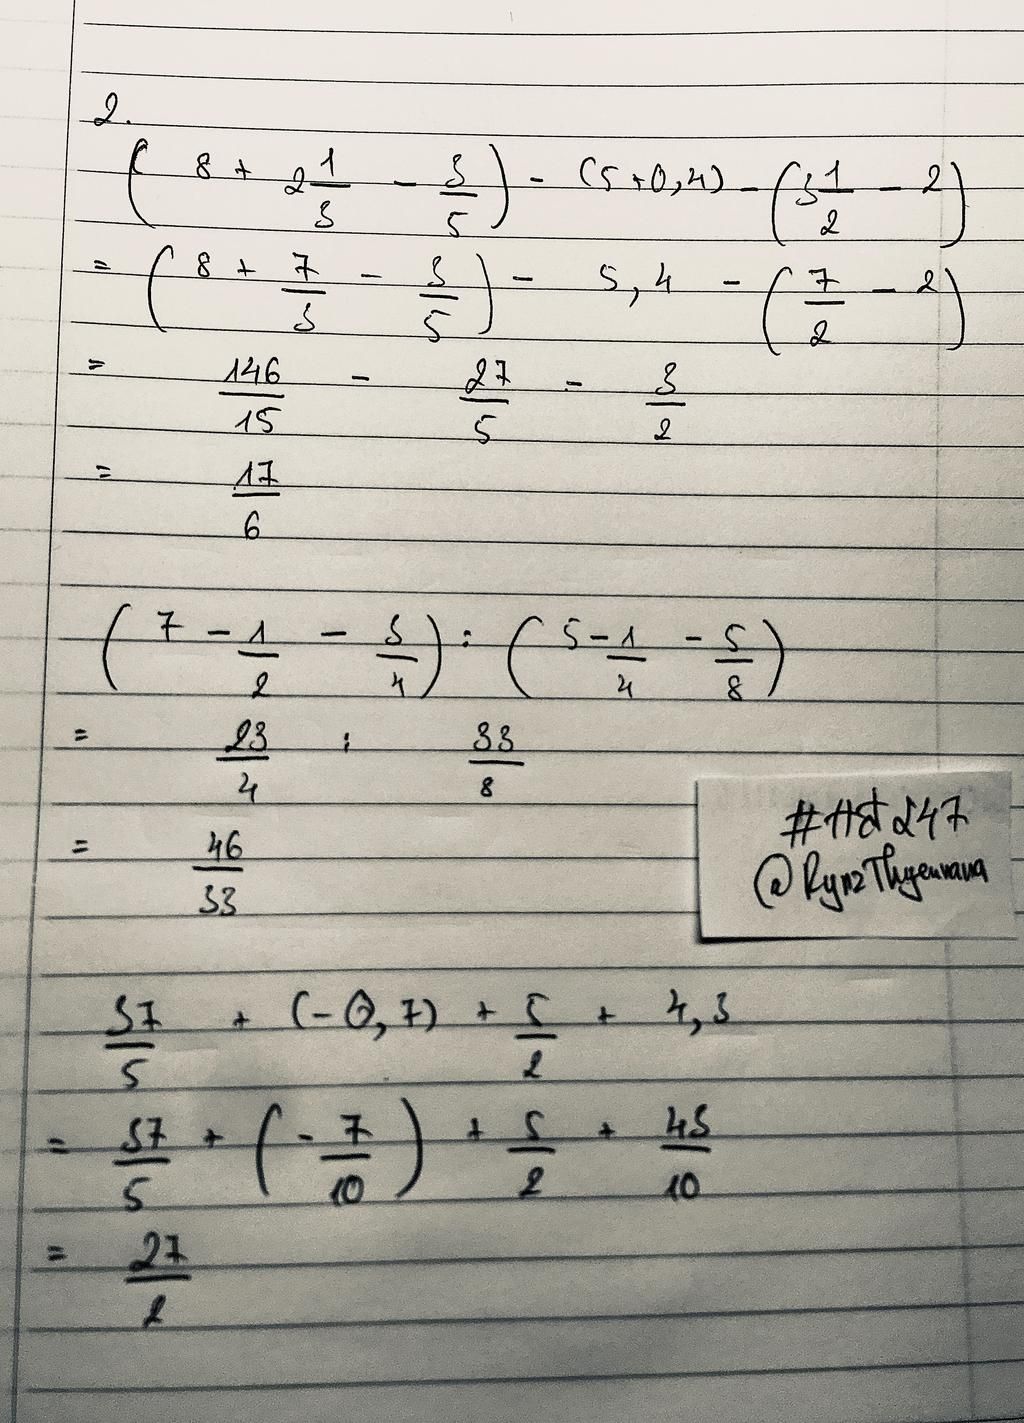 2.
( 8 + 2 1/3 - 3/5 ) - (5+0,4) - ( 3 1/2 - 2 )
= ( 8 + 7/3 - 3/5 ) - 5,4 - ( 7/2 - 2 )
= 146/15 - 27/5 - 3/2
= 17/6
( 7 - 1/2 - 3/4 ) : ( 5 - 1/4 - 5/8 )
= 23/4 : 33/8
= 46/33
#Hđ247
37/5 + (-0,7) + 5/2 + 4,3
= 37/5 + ( - 7/10 ) + 5/2 + 43/10
= 27/2